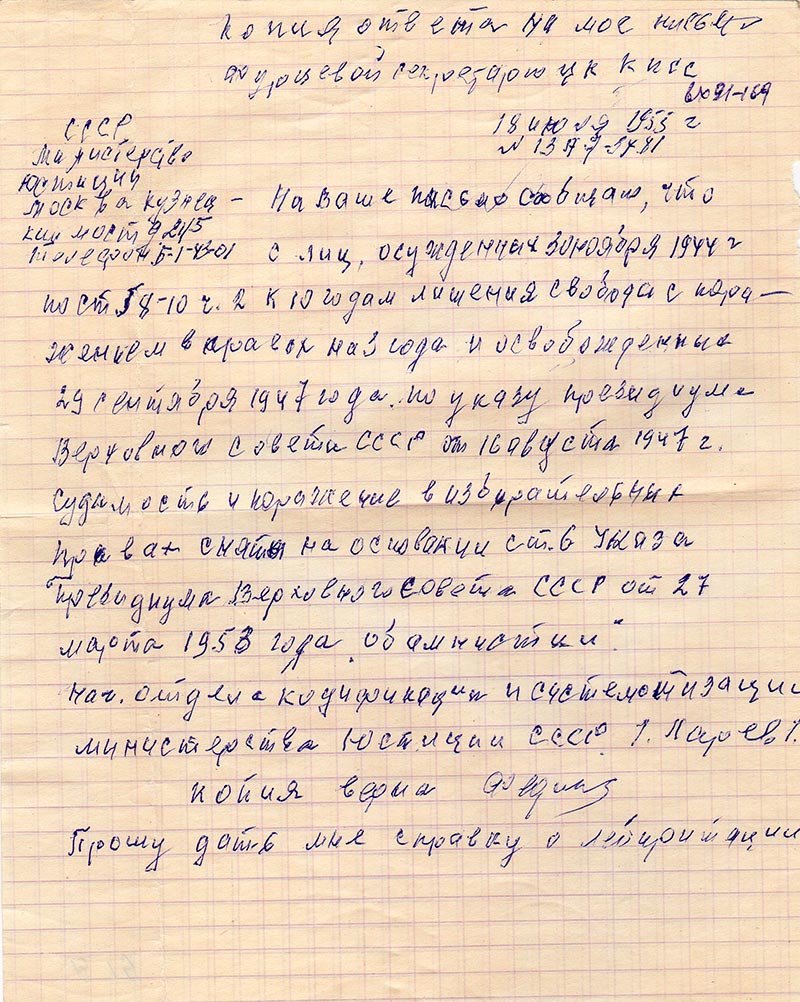 Копия ответа на мое письмо
Фурцевой секретарю ЦК КПСС
18 июля 1955 г
СССР
Министерство
Юстиции
Москва Кузнец-
кий мост
телефон
На Ваше письмо сообщаю, что
с лиц, осужденных 30 ноября 1944 г
по ст. 58-10 ч. 2 к 10 годам лишения свобода с пора-
жением в правах на 3 года и освобожденных
29 сентября 1947 года. по указу президиума
Верховного Совета СССР от 16 августа 1947 г.
судимость и поражение в избирательных
правах сняты на основании ст. 6 Указа
Президиума Верховного Совета СССР от 27
марта 1953 года „об амнистии"
нач. отдела кодификации и систематизации
министерства Юстиции СССР
копия верна
Прошу дать мне справку о